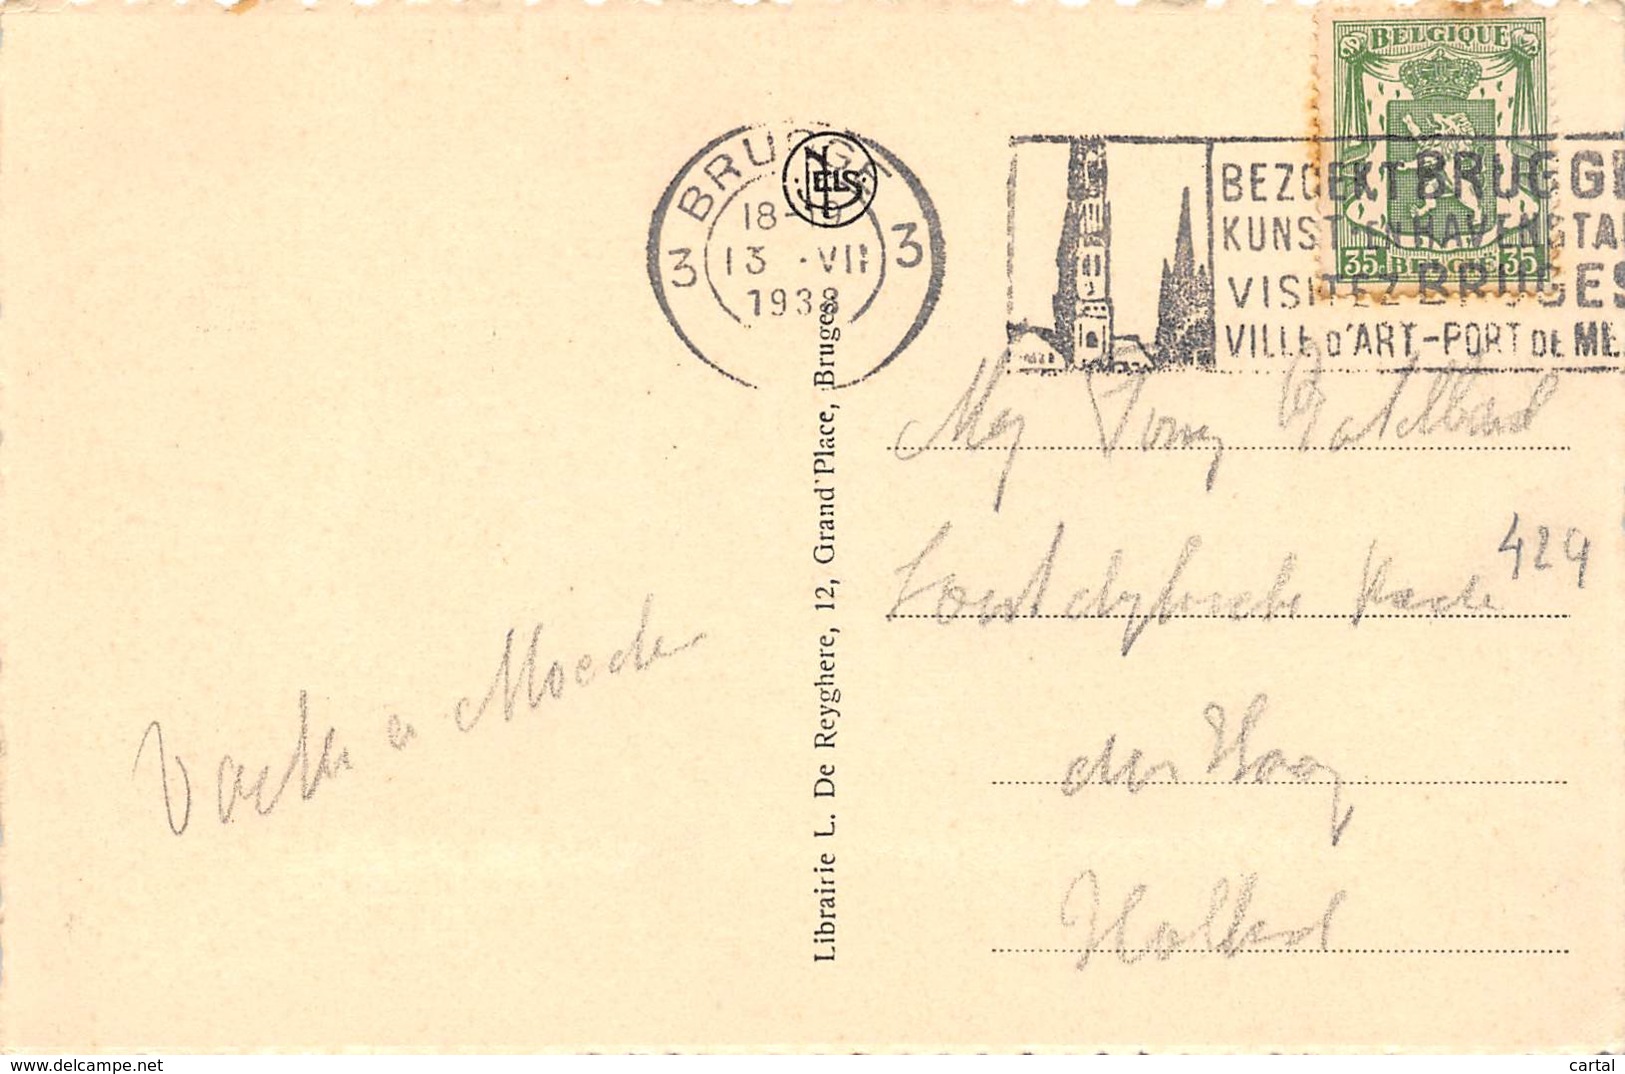 BELGIQUE
35 BELGIE 35
BRUGGE
NELS
18-19
3 13 · VII 3
1938
BEZOEKT BRUGGE
KUNST EN HAVENSTA
VISITEZ BRUGES
VILLE D'ART-PORT DE ME
Librairie L. De Reyghere, 12, Grand'Place, Bruges.
Mej Tony
429
den Haag
Holland
Vader en Moeder
www.delcampe.net
cartal